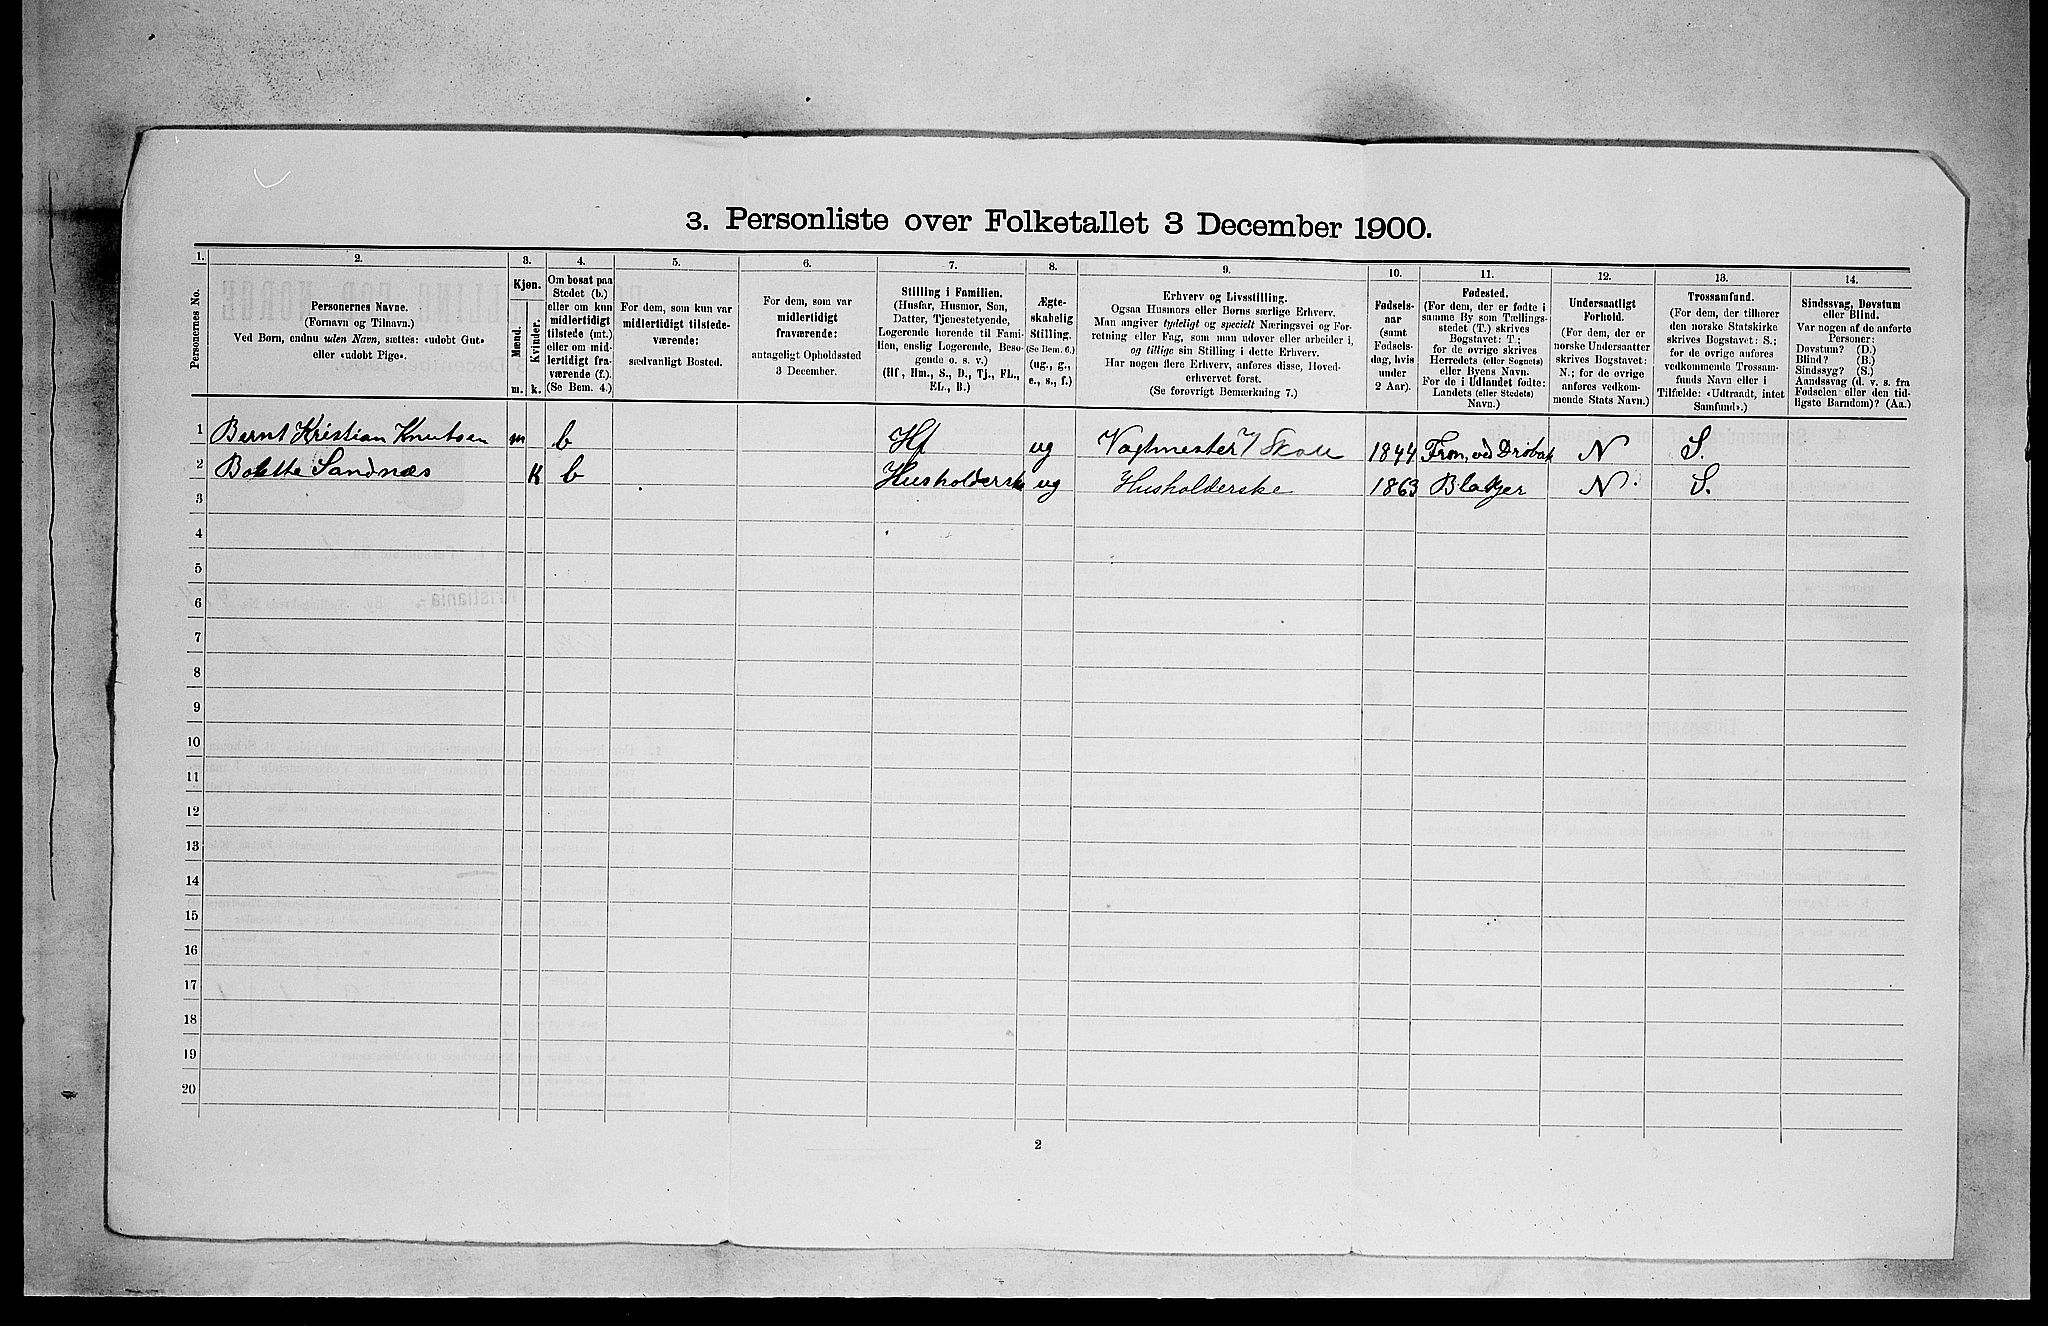 3. Personliste over Folketallet 3 December 1900.
1. 2. 3. 4. 5. 6. 7. 8. 9. 10. 11. 12. 13. 14.
Personernes No.
Personernes Navne.
(Fornavn og Tilnavn.)
Ved Børn, endnu uden Navn, sættes: «udøbt Gut»
eller «udøbt Pige».
Kjøn.
Mænd.
Kvinder.
m. k.
Om bosat paa
Stedet (b.)
eller om kun
midlertidigt
tilstede (mt.)
eller om mid-
lertidigt fra-
værende (f.).
(Se Bem. 4.)
For dem, som kun var
midlertidigt tilstede-
værende:
sædvanligt Bosted.
For dem, som var
midlertidigt
fraværende:
antageligt Opholdssted
3 December.
Stilling i Familien.
(Husfar, Husmor, Søn,
Datter, Tjenestetyende,
Logerende hørende til Fami-
lien, enslig Logerende, Besø-
gende o. s. v.)
(Hf, Hm., S., D., Tj., FL.,
EL., B.)
Ægte-
skabelig
Stilling.
(Se Bem. 6.)
(ug., g.,
e., s., f.)
Erhverv og Livsstilling.
Ogsaa Husmors eller Børns særlige Erhverv.
Man angiver tydeligt og specielt Næringsvei og For-
retning eller Fag, som man udover eller arbeider i,
og tillige sin Stilling i dette Erhverv.
Har nogen flere Erhverv, anføres disse, Hoved-
erhvervet først.
(Se forøvrigt Bemærkning 7.)
Fødsels-
aar
(samt
Fødsels-
dag, hvis
under
2 Aar).
Fødested.
(For dem, der er fødte i
samme By som Tællings-
stedet (T.) skrives
Bogstavet: T.;
for de øvrige skrives
Herredets (eller Sognets)
eller Byens Navn.
For de i Udlandet fødte:
Landets (eller Stedets)
Navn.)
Undersaatligt
Forhold.
(For dem, der er
norske Undersaatter
skrives Bogstavet:
N.; for de øvrige
anføres vedkom-
mende Stats Navn.)
Trossamfund.
(For dem, der tilhører
den norske Statskirke
skrives Bogstavet: S.;
for de øvrige anføres
vedkommende Trossam-
funds Navn eller i
Tilfælde: «Udtraadt, intet
Samfund».)
Sindssvag, Døvstum
eller Blind.
Var nogen af de anførte
Personer:
Døvstum? (D.)
Blind? (B.)
Sindssyg? (S.)
Aandssvag (d. v. s. fra
Fødselen eller den tid-
ligste Barndom)? (Aa.)
1 Bernt Kristian Knutsen m b Hf ug Vagtmester v/ Skole 1844 Fron, ved Drøbak N S.
2 Bolette Sandnæs K b Husholderske ug Husholderske 1863 Blakjer N. S.
3
4
5
6
7
8
9
10
11
12
13
14
15
16
17
18
19
20
2